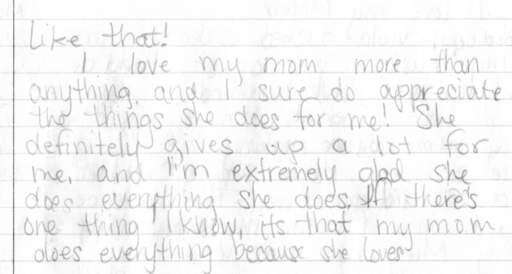 like that!
I love my mom more than
anything, and I sure do appreciate
the things she does for me! She
definitely gives up a lot for
me, and I'm extremely glad she
does everything she does. If there's
one thing I know, its that my mom
does everything because she loves